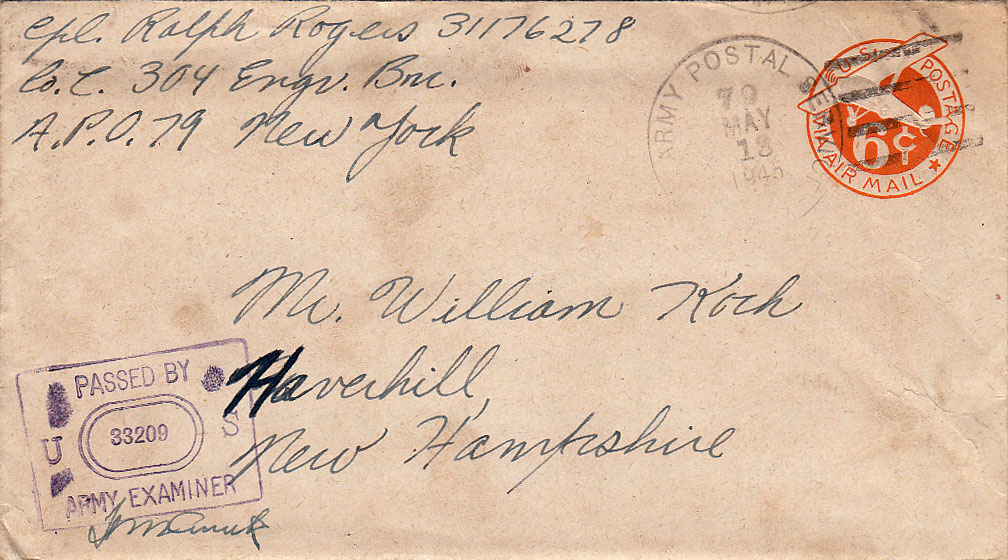 Cpl. Ralph Rogers 31176278
Co. C. 304 Engr. Bn.
A.P.O. 79 New York
ARMY POSTAL
79
MAY
13
1945
U.S. POSTAGE
6¢
VIA AIR MAIL
Mr. William Koch
Haverhill,
New Hampshire
PASSED BY
U 33209 S
ARMY EXAMINER